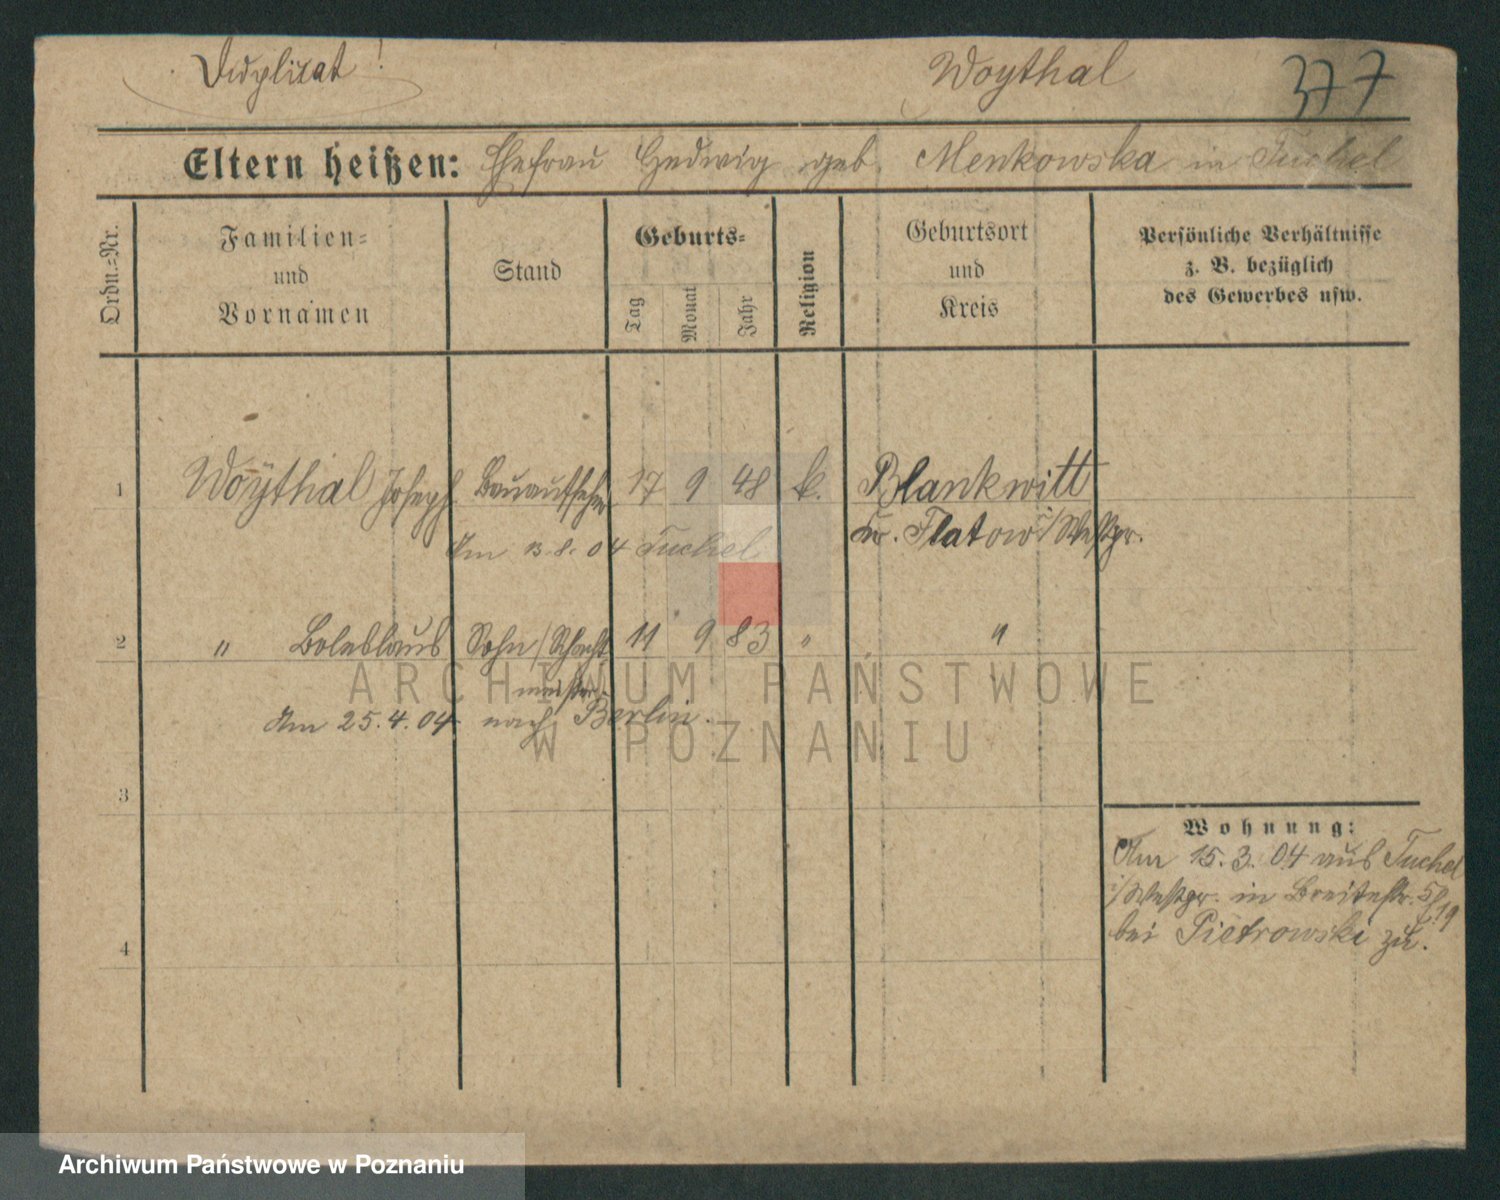 Duplicat!
Woythal
377
Eltern heißen: Ehefrau Hedwig geb. Menkowska in Tuchel
Ordn.-Nr.
Familien-
und
Vornamen
Stand
Geburts-
Tag
Monat
Jahr
Religion
Geburtsort
und
Kreis
Persönliche Verhältnisse
z. B. bezüglich
des Gewerbes usw.
1 Woÿthal Joseph Bauaufseher 17 9 48 k. Blankwitt
Kr. Flatow i/Westpr.
Am 13.8.04 Tuchel
2 " Boleslaus Sohn/Schacht- 11 9 83 " "
meister
Am 25.4.04 nach Berlin.
3
4
Wohnung:
Am 15.3.04 aus Tuchel
i/Westpr. in Breitestr. 
bei Pietrowski zu.
ARCHIWUM PAŃSTWOWE
W POZNANIU
Archiwum Państwowe w Poznaniu